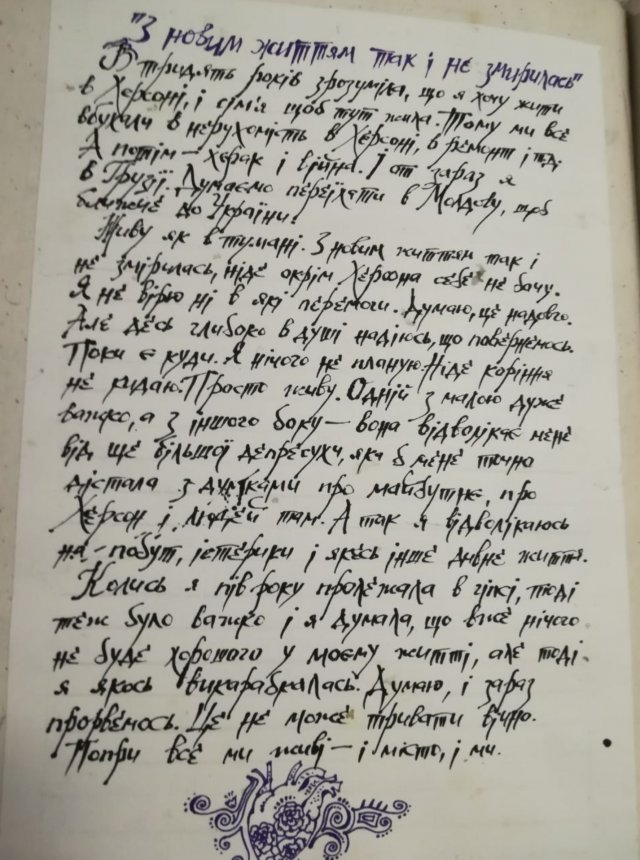 "З новим життям так і не змирилась"
В тридцять років зрозуміла, що я хочу жити
в Херсоні, і сім'я щоб тут жила. Тому ми все
вбухали в нерухомість в Херсоні, в ремонт і тд
А потім — херак і війна. І от зараз я
в Грузії. Думаємо переїхати в Молдову, щоб
ближче до України.
Живу як в тумані. З новим життям так і
не змирилась, ніде окрім Херсона себе не бачу.
Я не вірю ні в які перемоги. Думаю, це надовго.
Але десь глибоко в душі надіюсь, що повернемось.
Поки є куди. Я нічого не планую. Ніде коріння
не кидаю. Просто живу. Одній з малою дуже
важко, а з іншого боку — вона відволікає мене
від ще більшої депресухи, яка б мене точно
дістала з думками про майбутнє, про
Херсон і людей там. А так я відволікаюсь
на — побут, істерики і якесь інше дивне життя.
Колись я пів року пролежала в гіпсі, тоді
теж було важко і я думала, що вже нічого
не буде хорошого у моєму житті, але тоді
я якось викарабкалась. Думаю, і зараз
прорвемось. Це не може тривати вічно.
Попри все ми живі — і місто, і ми.